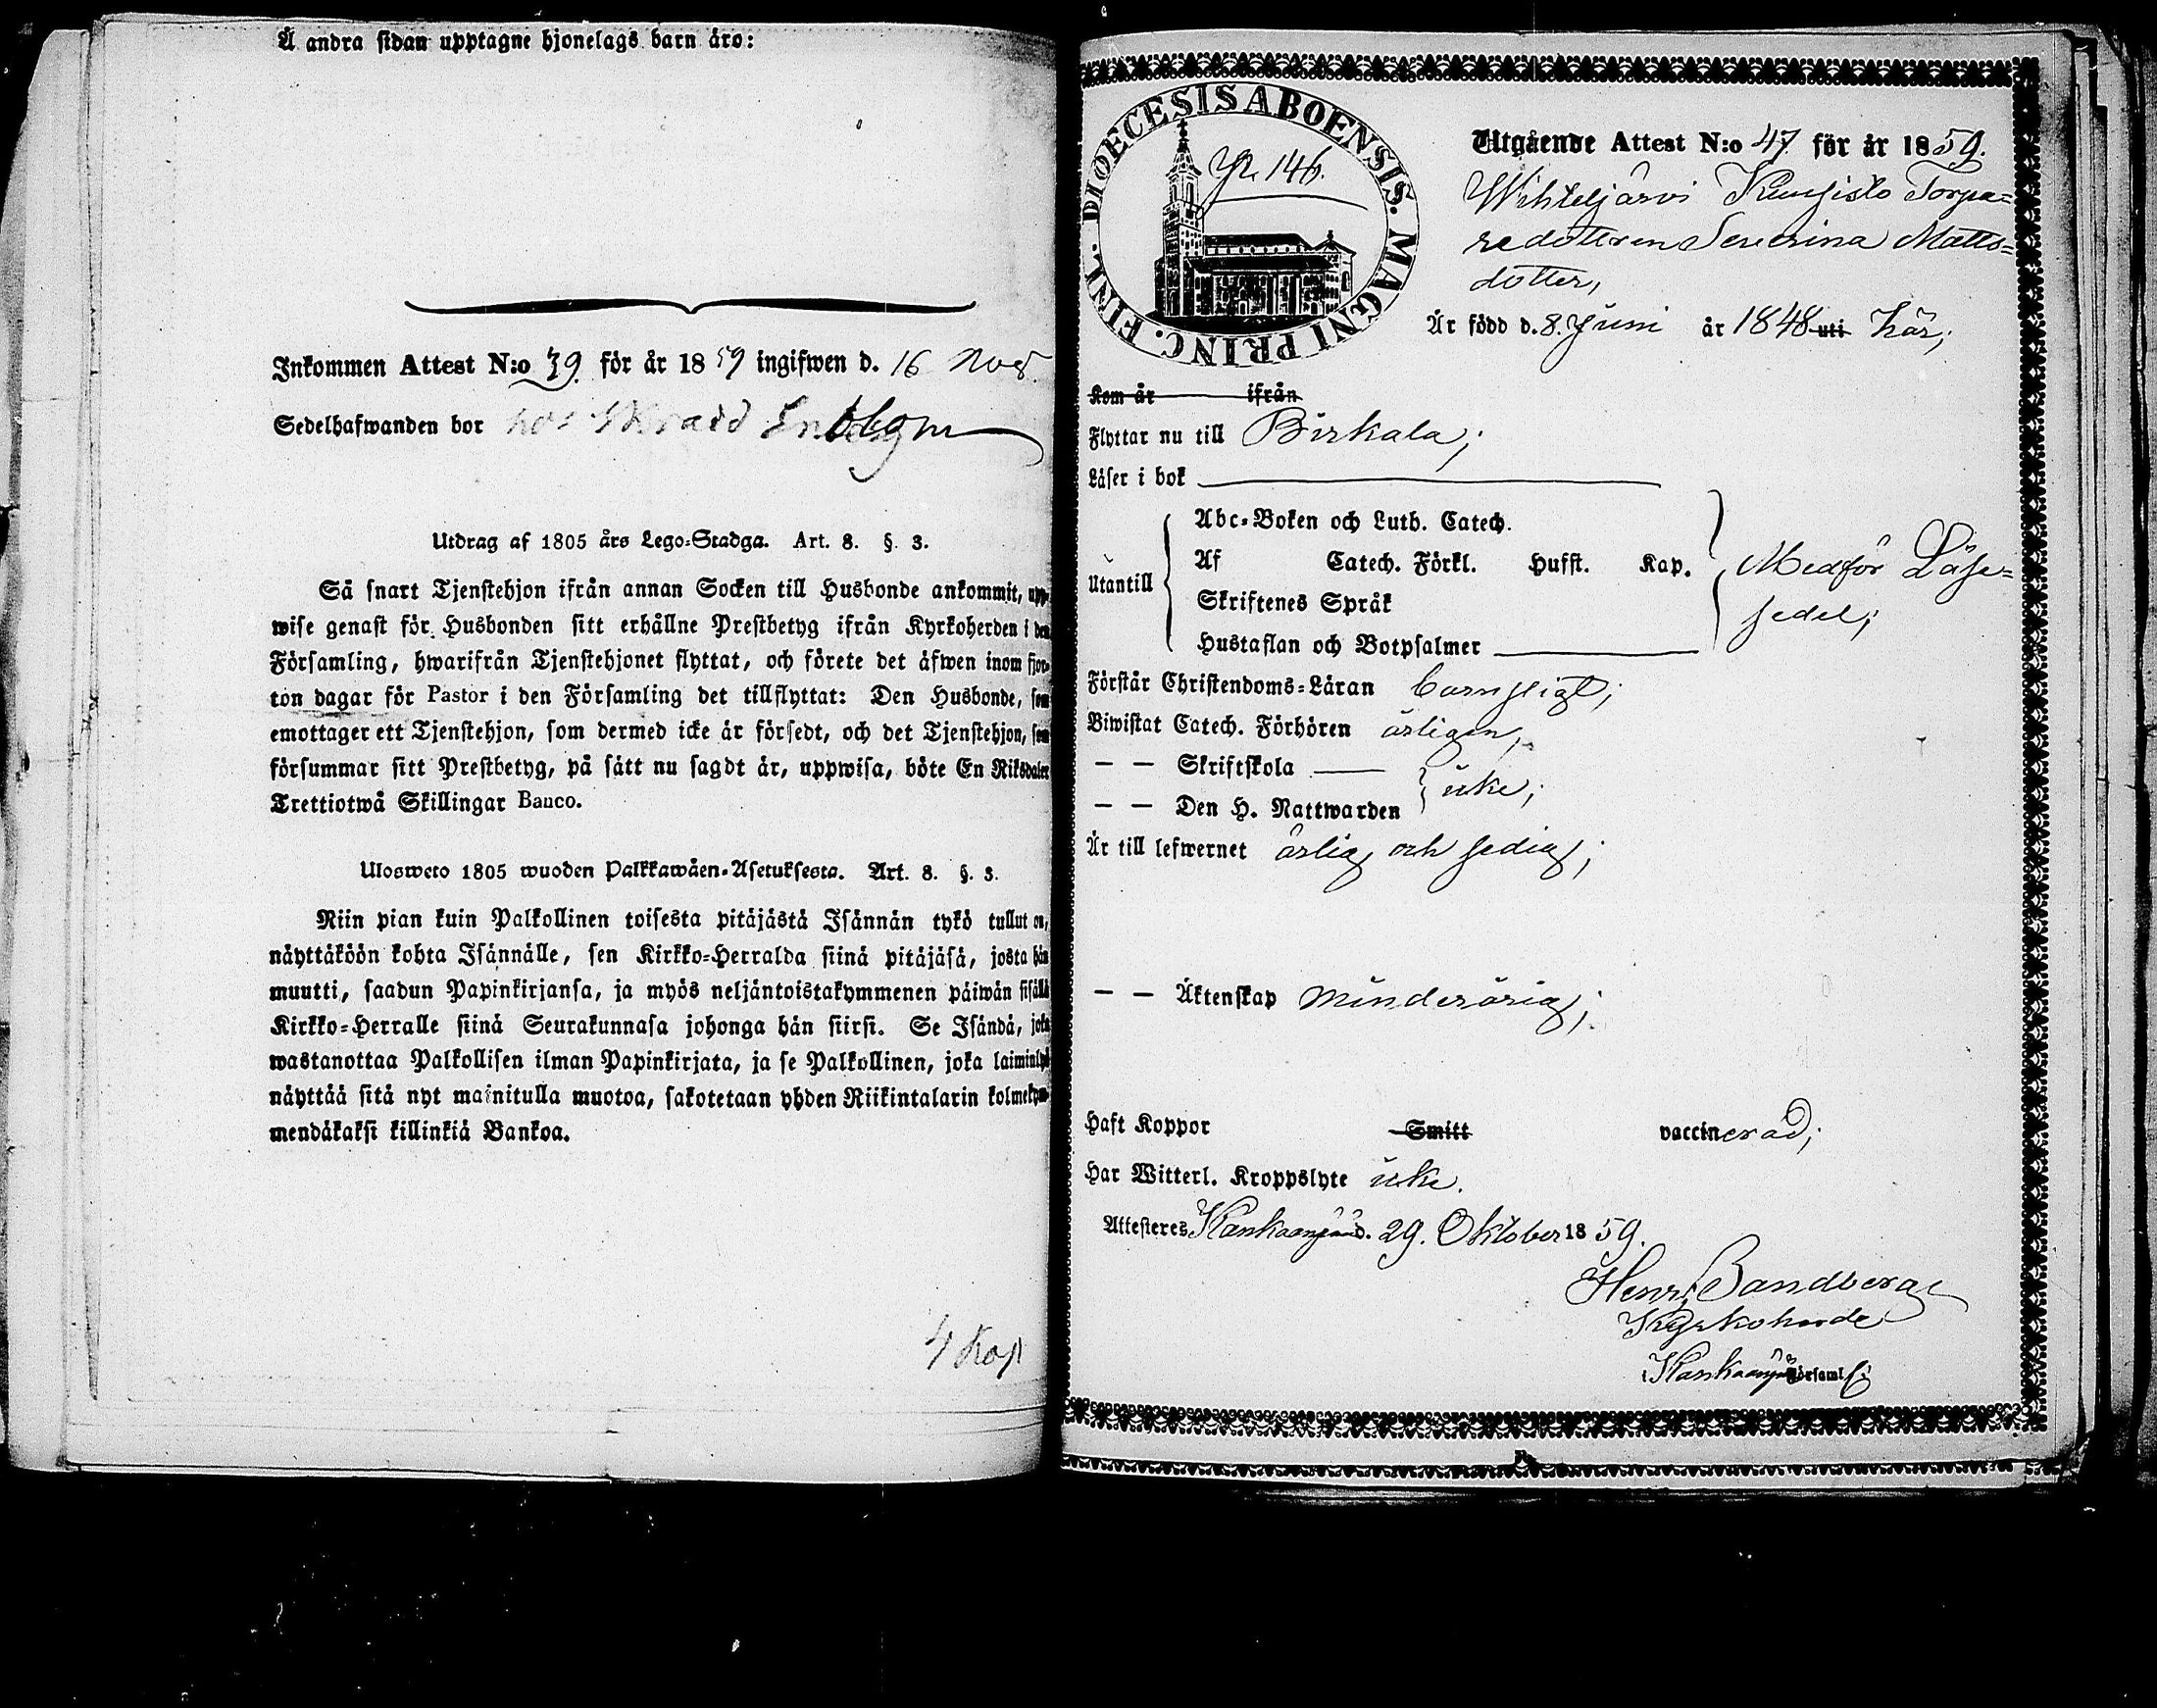 Å andra sidan upptagne hjonelags barn äro:
Inkommen Attest N:o 39 för år 1859 ingifwen d. 16 Nov
Sedelhafwanden bor hos
Utdrag af 1805 års Lego-Stadga. Art. 8. §. 3.
Så snart Tjenstehjon ifrån annan Socken till Husbonde ankommit, upp-
wise genast för Husbonden sitt erhållne Prestbetyg ifrån Kyrkoherden i den
Församling, hwarifrån Tjenstehjonet flyttat, och förete det äfwen inom fjor-
ton dagar för Pastor i den Församling det tillflyttat: Den Husbonde, som
emottager ett Tjenstehjon, som dermed icke är försedt, och det Tjenstehjon, som
försummar sitt Prestbetyg, på sätt nu sagdt är, uppwisa, böte En Riksdaler
Trettiotwå Skillingar Banco.
Ulosweto 1805 wuoden Palkkawäen-Asetuksesta. Art. 8. §. 3.
Niin pian kuin Palkollinen toisesta pitäjästä Isännän tykö tullut on,
näyttäköön kohta Isännälle, sen Kirkko-Herralda siinä pitäjäsä, josta hän
muutti, saadun Papinkirjansa, ja myös neljäntoistakymmenen päiwän sisällä
Kirkko-Herralle siinä Seurakunnasa johonga hän siirsi. Se Isändä, joka
wastanottaa Palkollisen ilman Papinkirjata, ja se Palkollinen, joka laiminlyö
näyttää sitä nyt mainitulla muotoa, sakotetaan yhden Riikintalarin kolmekym-
mendäkaksi killinkiä Bankoa.
4 Kop
DIOECESIS ABOENSIS. MAGNI PRINC. FINL.
146.
Utgående Attest N:o 47 för år 1859.
Wihteljärvi Torpa-
redotteren Severina Matts-
dotter,
Är född d. 8. Juni år 1848 uti här;
Kom år ifrån
Flyttar nu till Birkala;
Läser i bok
Utantill
Abc-Boken och Luth. Catech.
Af Catech. Förkl. Hufst. Kap.
Skriftenes Språk
Hustaflan och Botpsalmer
Medför Läse-
sedel;
Förstår Christendoms-Läran barnsligt;
Biwistat Catech. Förhören årligen,
— — Skriftskola
— — Den H. Nattwarden icke;
Är till lefwernet ärlig och sedig;
— — Äktenskap minderårig;
Haft Koppor Smitt vaccinerad;
Har Witterl. Kroppslyte icke.
Attesteres Kankaanpää d. 29. Oktober 1859.
Henr. Sandberg
Kyrkoherde
Kankaanpää Församl